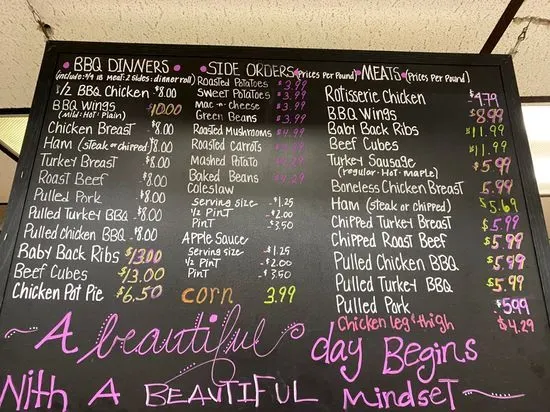 BBQ DINNERS
(include: 1/4 lb meat: 2 sides: dinner roll)
1/2 BBQ Chicken $8.00
BBQ Wings $10.00
(mild: Hot: Plain)
Chicken Breast $8.00
Ham (steak or chipped) $8.00
Turkey Breast $8.00
Roast Beef $8.00
Pulled Pork $8.00
Pulled Turkey BBQ $8.00
Pulled Chicken BBQ $8.00
Baby Back Ribs $13.00
Beef Cubes $13.00
Chicken Pot Pie $6.50
SIDE ORDERS (Prices Per Pound)
Roasted Potatoes $3.99
Sweet Potatoes $3.99
Mac-n-cheese $3.99
Green Beans $3.99
Roasted Mushrooms $4.99
Roasted Carrots
Mashed Potato
Baked Beans $4.29
Coleslaw
serving size -$1.25
1/2 Pint -$2.00
Pint -$3.50
Apple Sauce
serving size -$1.25
1/2 Pint -$2.00
Pint -$3.50
corn 3.99
MEATS (Prices Per Pound)
Rotisserie Chicken $4.79
B.B.Q Wings $8.99
Baby Back Ribs $11.99
Beef Cubes $11.99
Turkey Sausage $5.99
(regular. Hot. maple)
Boneless Chicken Breast $5.99
Ham (steak or chipped) $5.69
Chipped Turkey Breast $5.99
Chipped Roast Beef $5.99
Pulled Chicken BBQ $5.99
Pulled Turkey BBQ $5.99
Pulled Pork $5.99
Chicken leg & thigh $4.29
A beautiful day Begins
With A BEAUTIFUL Mindset